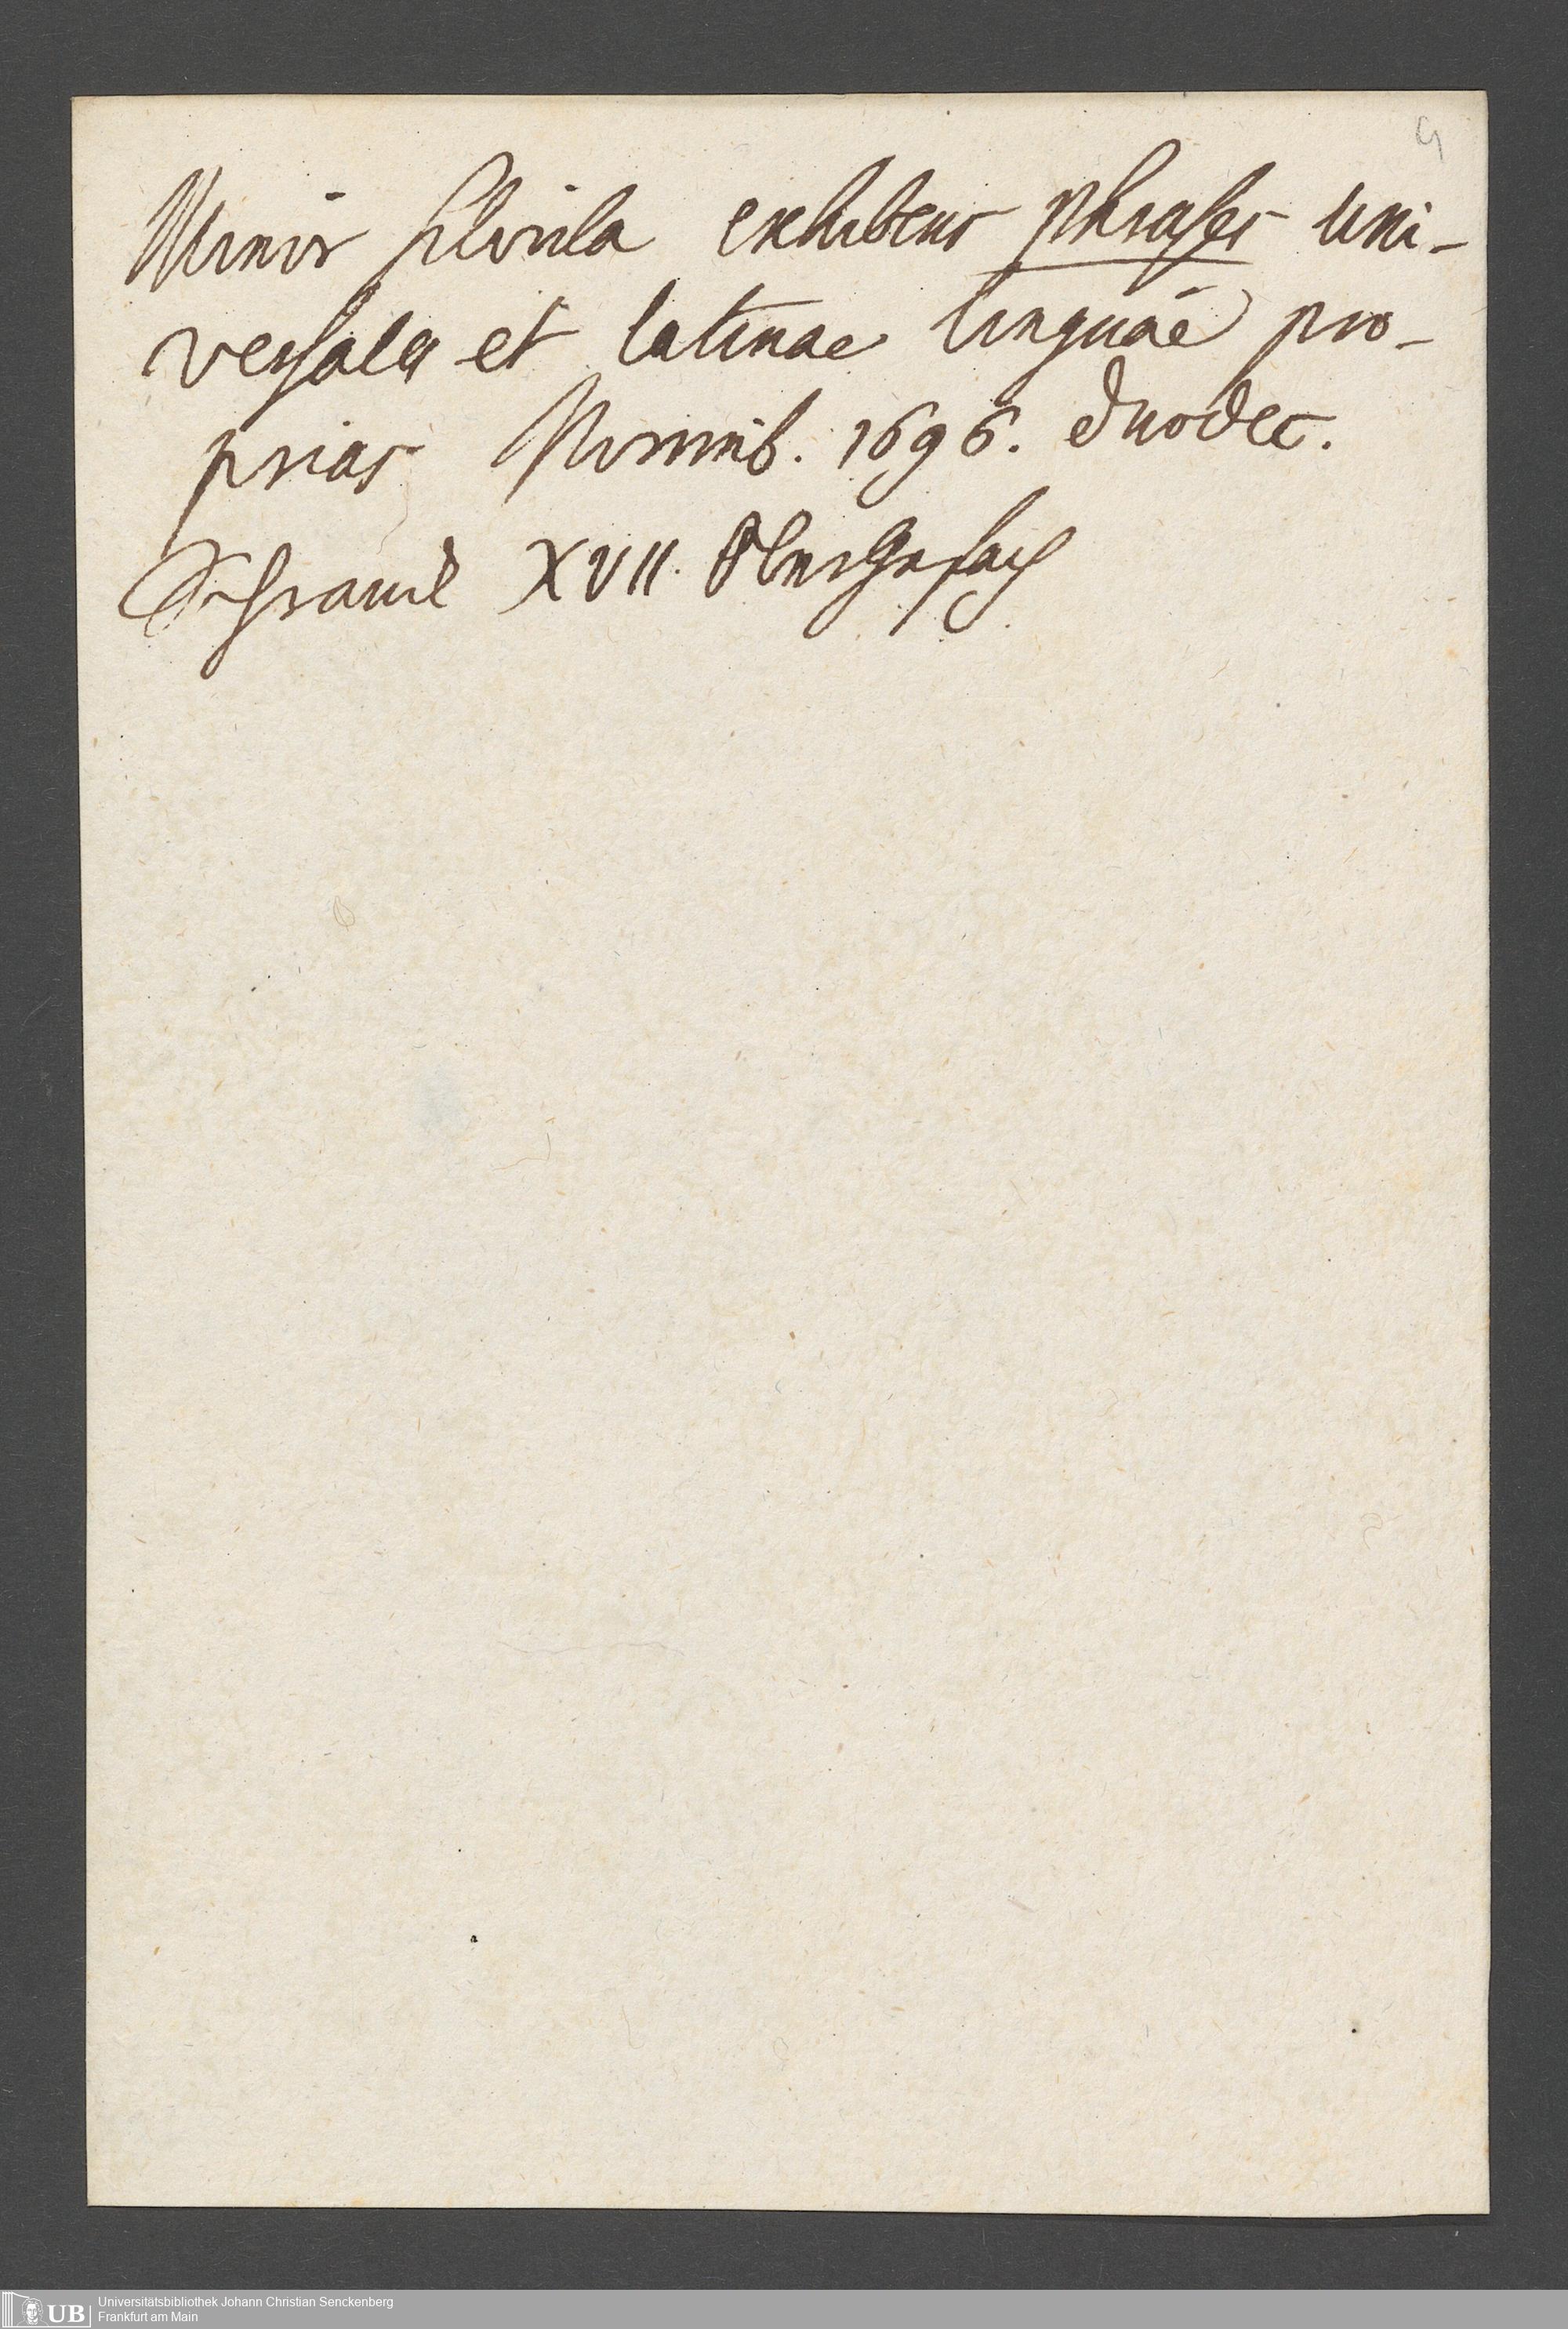 9
Minor silvula exhibens phrases uni-
versales et latinae linguae pro-
prias Norimb. 1696. duodec.
Schranck XVII. Obergefach
UB
Universitätsbibliothek Johann Christian Senckenberg
Frankfurt am Main